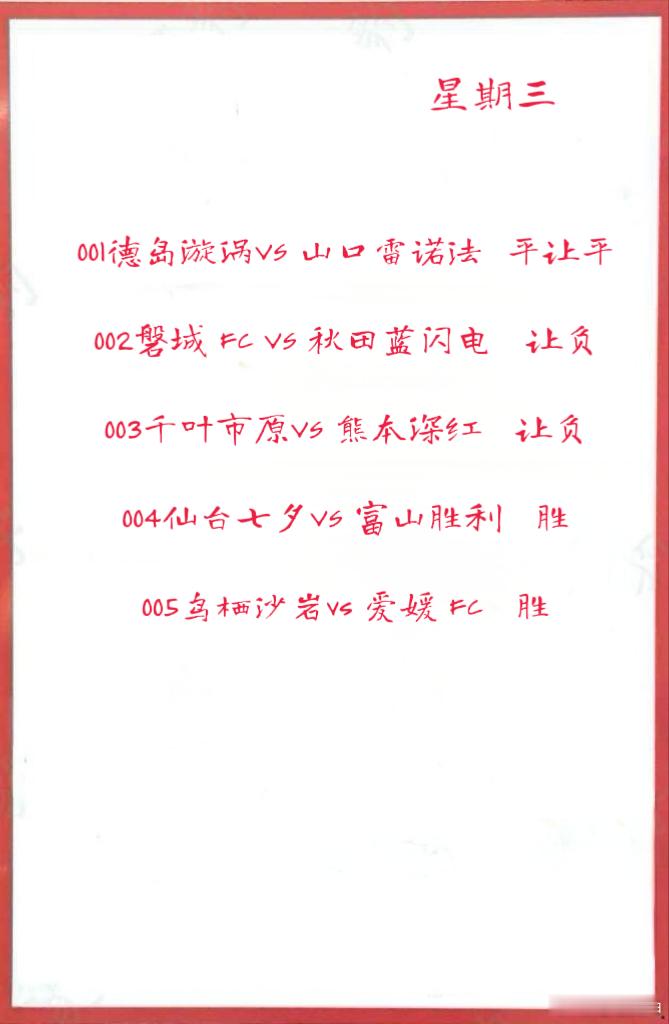 星期三
001德岛漩涡VS 山口雷诺法 平让平
002磐城 FC VS 秋田蓝闪电 让负
003千叶市原VS 熊本深红 让负
004仙台七夕VS 富山胜利 胜
005鸟栖沙岩VS 爱媛 FC 胜